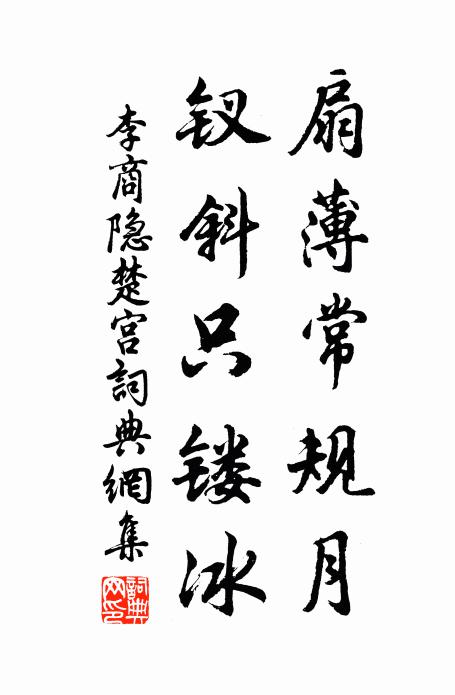 扇薄常规月
钗斜只镂冰
李商隐楚宫詞典網集
詞典网印